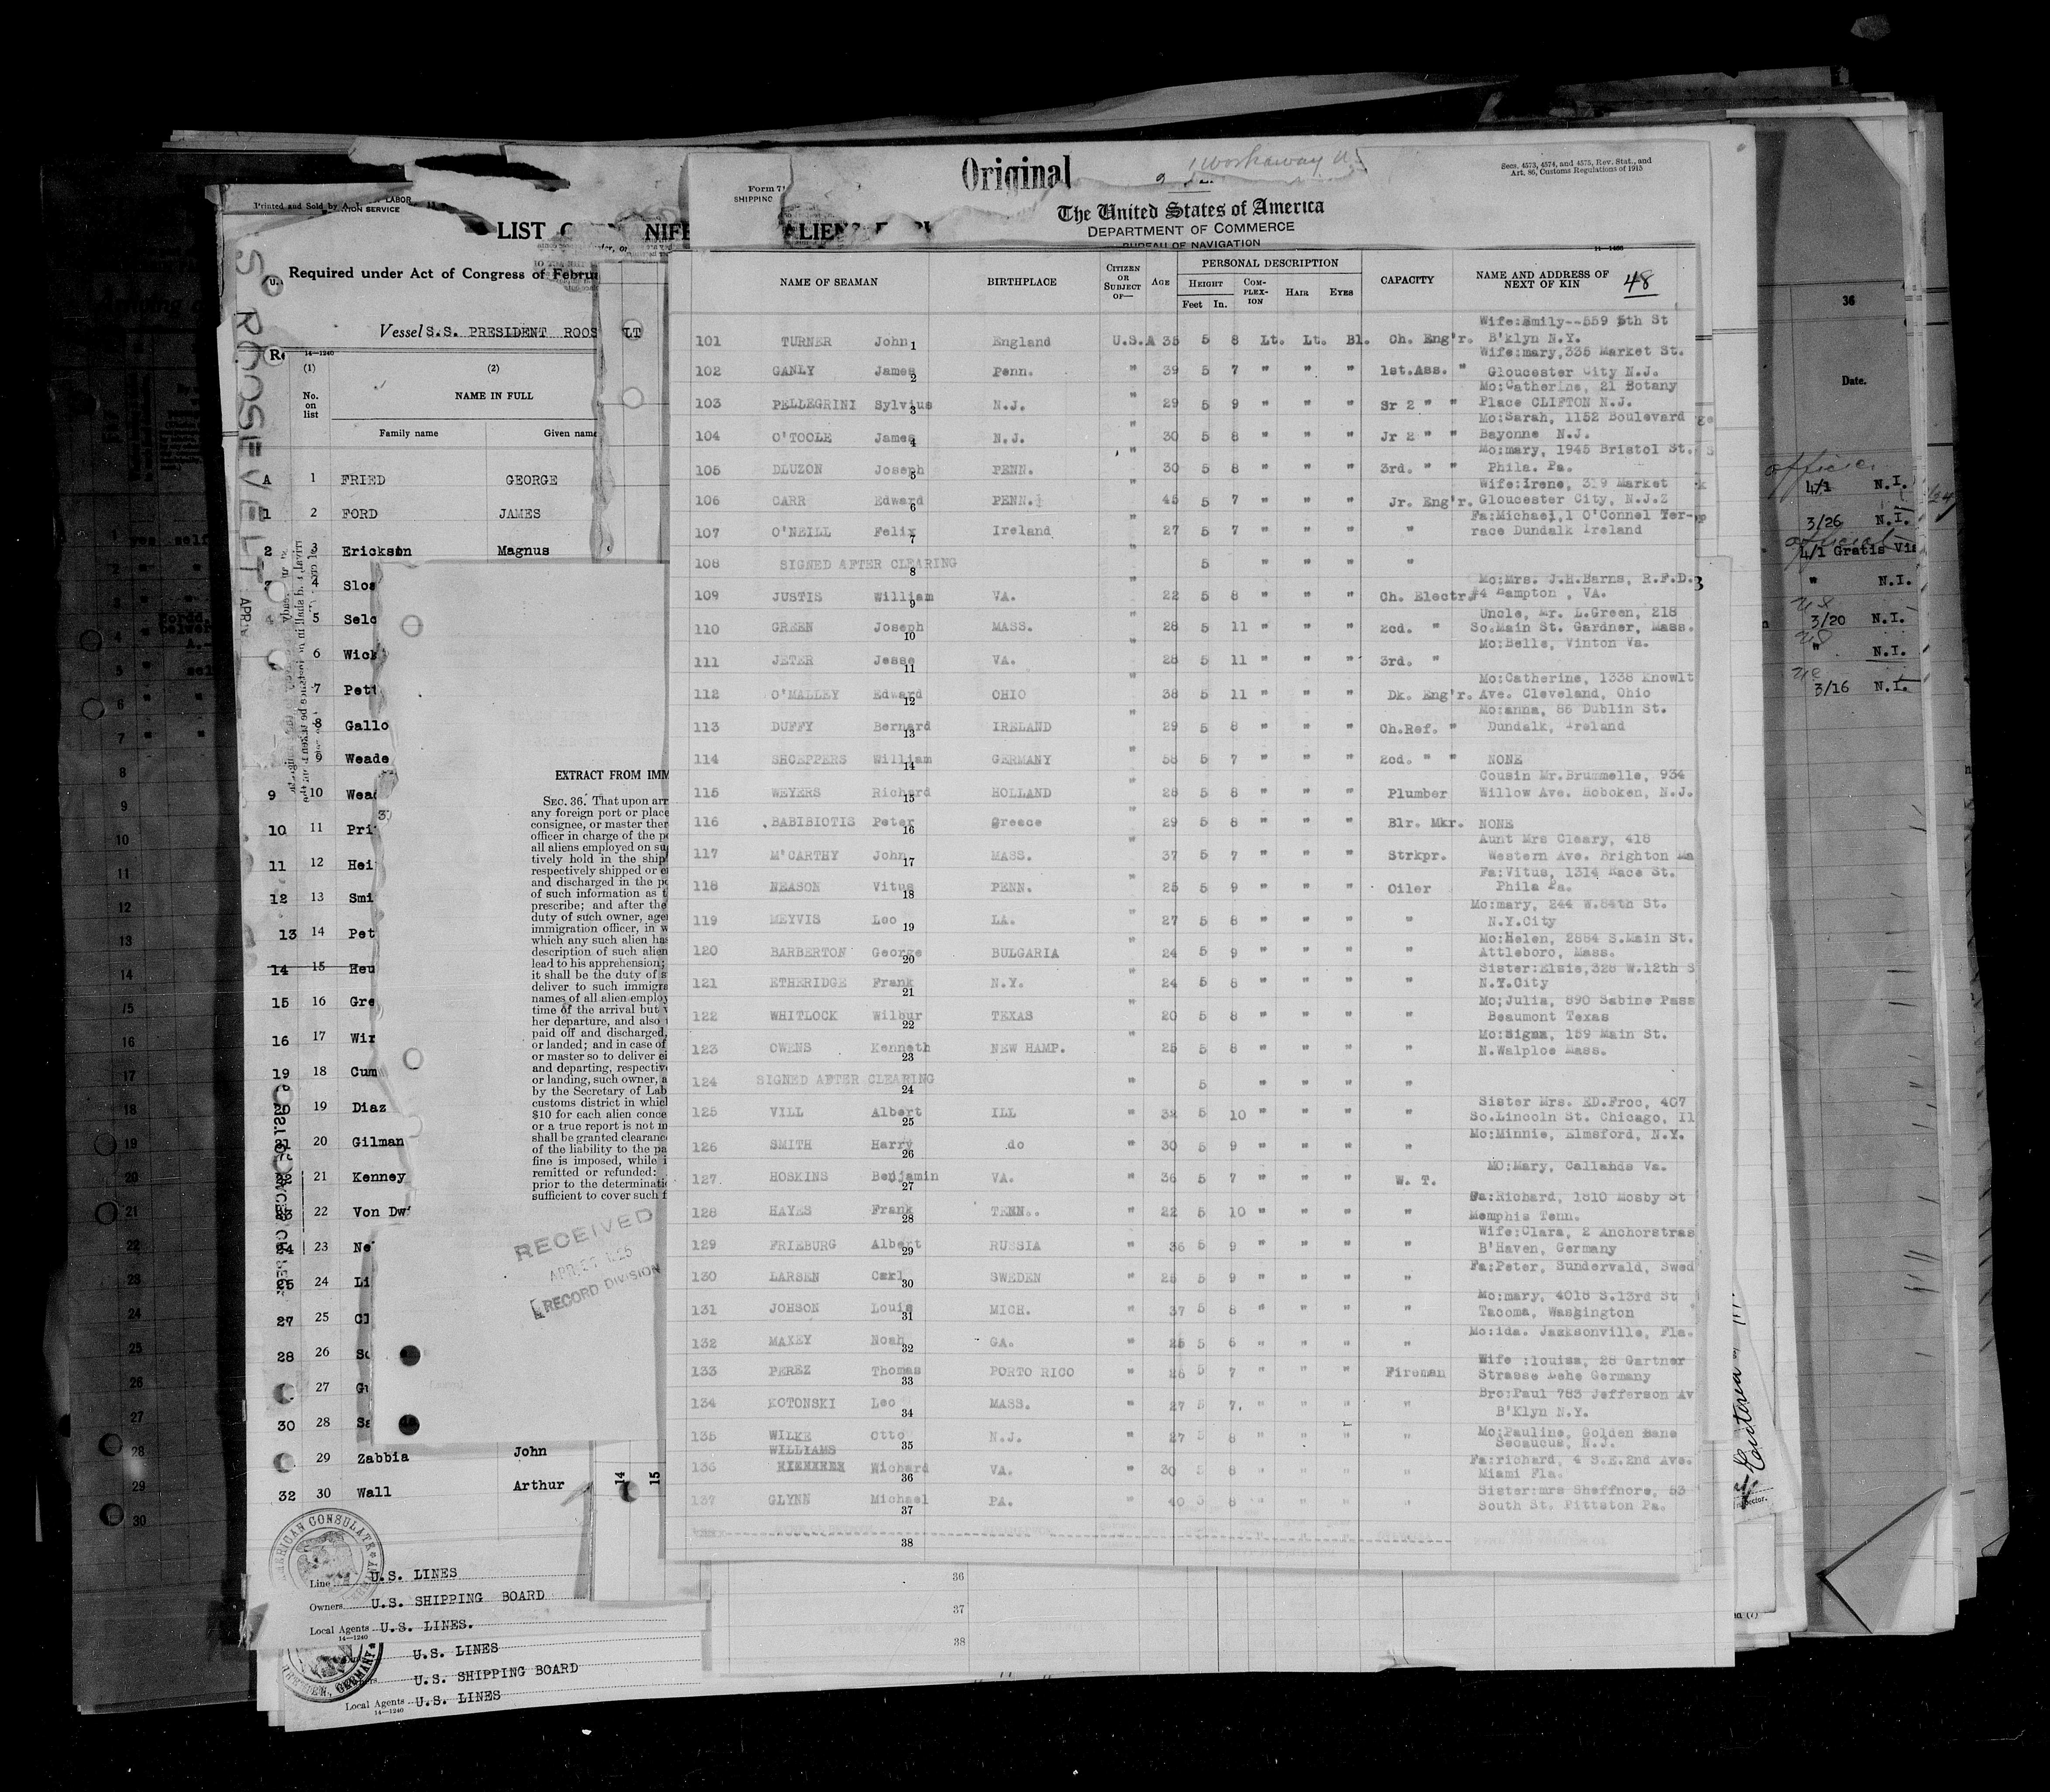 Original
1 Workaway
Form 71
SHIPPING
Secs. 4573, 4574, and 4575, Rev. Stat., and
Art. 86, Customs Regulations of 1915
The United States of America
DEPARTMENT OF COMMERCE
BUREAU OF NAVIGATION
Printed and Sold by A.
LABOR
SERVICE
LIST
Required under Act of Congress of Febru
Vessel S.S. PRESIDENT ROOS LT
S. ROOSEVELT
APR
14—1240
(1) (2)
No. on list NAME IN FULL
Family name Given name
A 1 FRIED GEORGE
1 2 FORD JAMES
2 3 Erickson Magnus
4 Slos
5 Selc
6 Wick
7 Pett
8 Gallo
9 Weade
9 10 Wea
10 11 Pri
11 12 Hei
12 13 Smi
13 14 Pet
14 15 Heu
15 16 Gre
16 17 Wir
19 18 Cum
20 19 Diaz
21 20 Gilman
22 21 Kenney
23 22 Von Dw
24 23 Ne
25 24 Li
27 25 Cl
28 26 Sc
27 Gu
30 28 Sa
29 Zabbia John
32 30 Wall Arthur
14 15
AMERICAN CONSULATE
Line U.S. LINES
Owners U.S. SHIPPING BOARD
Local Agents U.S. LINES.
14—1240
U.S. LINES
U.S. SHIPPING BOARD
Local Agents U.S. LINES
14—1240
BREMEN, GERMANY
EXTRACT FROM IMM
SEC. 36. That upon arr
any foreign port or place
consignee, or master ther
officer in charge of the po
all aliens employed on su
tively hold in the ship
respectively shipped or e
and discharged in the po
of such information as t
prescribe; and after the
duty of such owner, agen
immigration officer, in w
which any such alien has
description of such alien
lead to his apprehension;
it shall be the duty of s
deliver to such immigra
names of all alien employ
time of the arrival but w
her departure, and also t
paid off and discharged,
or landed; and in case of
or master so to deliver ei
and departing, respective
or landing, such owner, a
by the Secretary of Lab
customs district in which
$10 for each alien conce
or a true report is not m
shall be granted clearance
of the liability to the pa
fine is imposed, while i
remitted or refunded:
prior to the determinatio
sufficient to cover such f
RECEIVED
RECORD DIVISION
NAME OF SEAMAN BIRTHPLACE CITIZEN OR SUBJECT OF— AGE PERSONAL DESCRIPTION CAPACITY NAME AND ADDRESS OF NEXT OF KIN 48
HEIGHT COMPLEXION HAIR EYES
Feet In.
Wife:Emily--559 5th St
101 TURNER John 1 England U.S.A 35 5 8 Lt. Lt. Bl. Ch. Eng'r. B'klyn N.Y.
Wife:mary,335 Market St.
102 GANLY James 2 Penn. " 39 5 7 " " " 1st.Ass. " Gloucester City N.J.
Mo:Catherine, 21 Botany
103 PELLEGRINI Sylvius 3 N.J. " 29 5 9 " " " Sr 2 " " Place CLIFTON N.J.
Mo:Sarah, 1152 Boulevard
104 O'TOOLE James 4 N.J. " 30 5 8 " " " Jr 2 " " Bayonne N.J.
Mo:mary, 1945 Bristol St.
105 DLUZON Joseph 5 PENN. " 30 5 8 " " " 3rd. " " Phila. Pa.
Wife:Irene, 319 Market
106 CARR Edward 6 PENN. " 45 5 7 " " " Jr. Eng'r. Gloucester City, N.J.
Fa:Michael,1 O'Connel Ter-
107 O'NEILL Felix 7 Ireland " 27 5 7 " " " " race Dundalk Ireland
108 SIGNED AFTER CLEARING 8 " 5 " " " "
Mo:Mrs. J.H.Barns, R.F.D.
109 JUSTIS William 9 VA. " 22 5 8 " " " Ch. Electr. #4 Hampton , VA.
Uncle, Mr. L.Green, 218
110 GREEN Joseph 10 MASS. " 28 5 11 " " " 2cd. " So.Main St. Gardner, Mass.
Mo:Belle, Vinton Va.
111 JETER Jesse 11 VA. " 28 5 11 " " " 3rd. "
Mo:Catherine, 1338 Knowlt
112 O'MALLEY Edward 12 OHIO " 38 5 11 " " " Dk. Eng'r. Ave. Cleveland, Ohio
Mo:anna, 86 Dublin St.
113 DUFFY Bernard 13 IRELAND " 29 5 8 " " " Ch.Ref. " Dundalk, Ireland
114 SHOEPPERS William 14 GERMANY " 58 5 7 " " " 2cd. " " NONE
Cousin Mr.Brummelle, 934
115 WEYERS Richard 15 HOLLAND " 28 5 8 " " " Plumber Willow Ave. Hoboken, N.J.
116 BABISIOTIS Peter 16 Greece " 29 5 8 " " " Blr. Mkr. NONE
Aunt Mrs Cleary, 418
117 M'CARTHY John 17 MASS. " 37 5 7 " " " Strkpr. Western Ave. Brighton Ma
Fa:Vitus, 1314 Race St.
118 NEASON Vitus 18 PENN. " 25 5 9 " " " Oiler Phila Pa.
Mo:mary, 244 W.84th St.
119 MEYVIS Leo 19 LA. " 27 5 8 " " " " N.Y.City
Mo:Helen, 2884 S.Main St.
120 BARBERTON George 20 BULGARIA " 24 5 9 " " " " Attleboro, Mass.
Sister:Elsie,328 W.12th S
121 ETHERIDGE Frank 21 N.Y. " 24 5 8 " " " " N.Y.City
Mo;Julia, 890 Sabine Pass
122 WHITLOCK Wilbur 22 TEXAS " 20 5 8 " " " " Beaumont Texas
Mo:Signa, 159 Main St.
123 OWENS Kenneth 23 NEW HAMP. " 25 5 8 " " " " N.Walploe Mass.
124 SIGNED AFTER CLEARING 24 " 5 " " " "
Sister Mrs. ED.Froc, 407
125 VILL Albert 25 ILL " 32 5 10 " " " " So.Lincoln St. Chicago, Il
126 SMITH Harry 26 do " 30 5 9 " " " " Mo:Minnie, Elmsford, N.Y.
MO:Mary, Callands Va.
127 HOSKINS Benjamin 27 VA. " 36 5 7 " " " W. T.
Fa:Richard, 1810 Mosby St
128 HAYES Frank 28 TENN.. " 22 5 10 " " " " Memphis Tenn.
Wife:Clara, 2 Anchorstras
129 FRIEBURG Albert 29 RUSSIA " 36 5 9 " " " " B'Haven, Germany
Fa:Peter, Sundervald, Swed
130 LARSEN Carl 30 SWEDEN " 25 5 9 " " " "
Mo:mary, 4018 S.13rd St
131 JOHSON Louis 31 MICH. " 37 5 8 " " " " Tacoma, Washington
Mo:ida. Jacksonville, Fla.
132 MAXEY Noah 32 GA. " 25 5 6 " " " "
Wife :louisa, 28 Gartner
133 PEREZ Thomas 33 PORTO RICO " 26 5 7 " " " Fireman Strasse Lehe Germany
Bro:Paul 783 Jefferson Av
134 KOTONSKI Leo 34 MASS. " 27 5 7. " " " " B'Klyn N.Y.
Mo:Pauline, Golden Bane
135 WILKE Otto 35 N.J. " 27 5 8 " " " " Secaucus, N.J.
WILLIAMS
136 Wichard 36 VA. " 30 5 8 " " " " Fa:richard, 4 S.E.2nd Ave.
Miami Fla.
Sister:mrs Sheffnore, 53
137 GLYNN Michael 37 PA. " 40 5 8 " " " " South St. Pittston Pa.
38
36
37
38
36
Date.
4/1 N.I.
3/26 N.I.
4/1 Gratis Vis
" N.I.
3/20 N.I.
" N.I.
3/16 N.I.